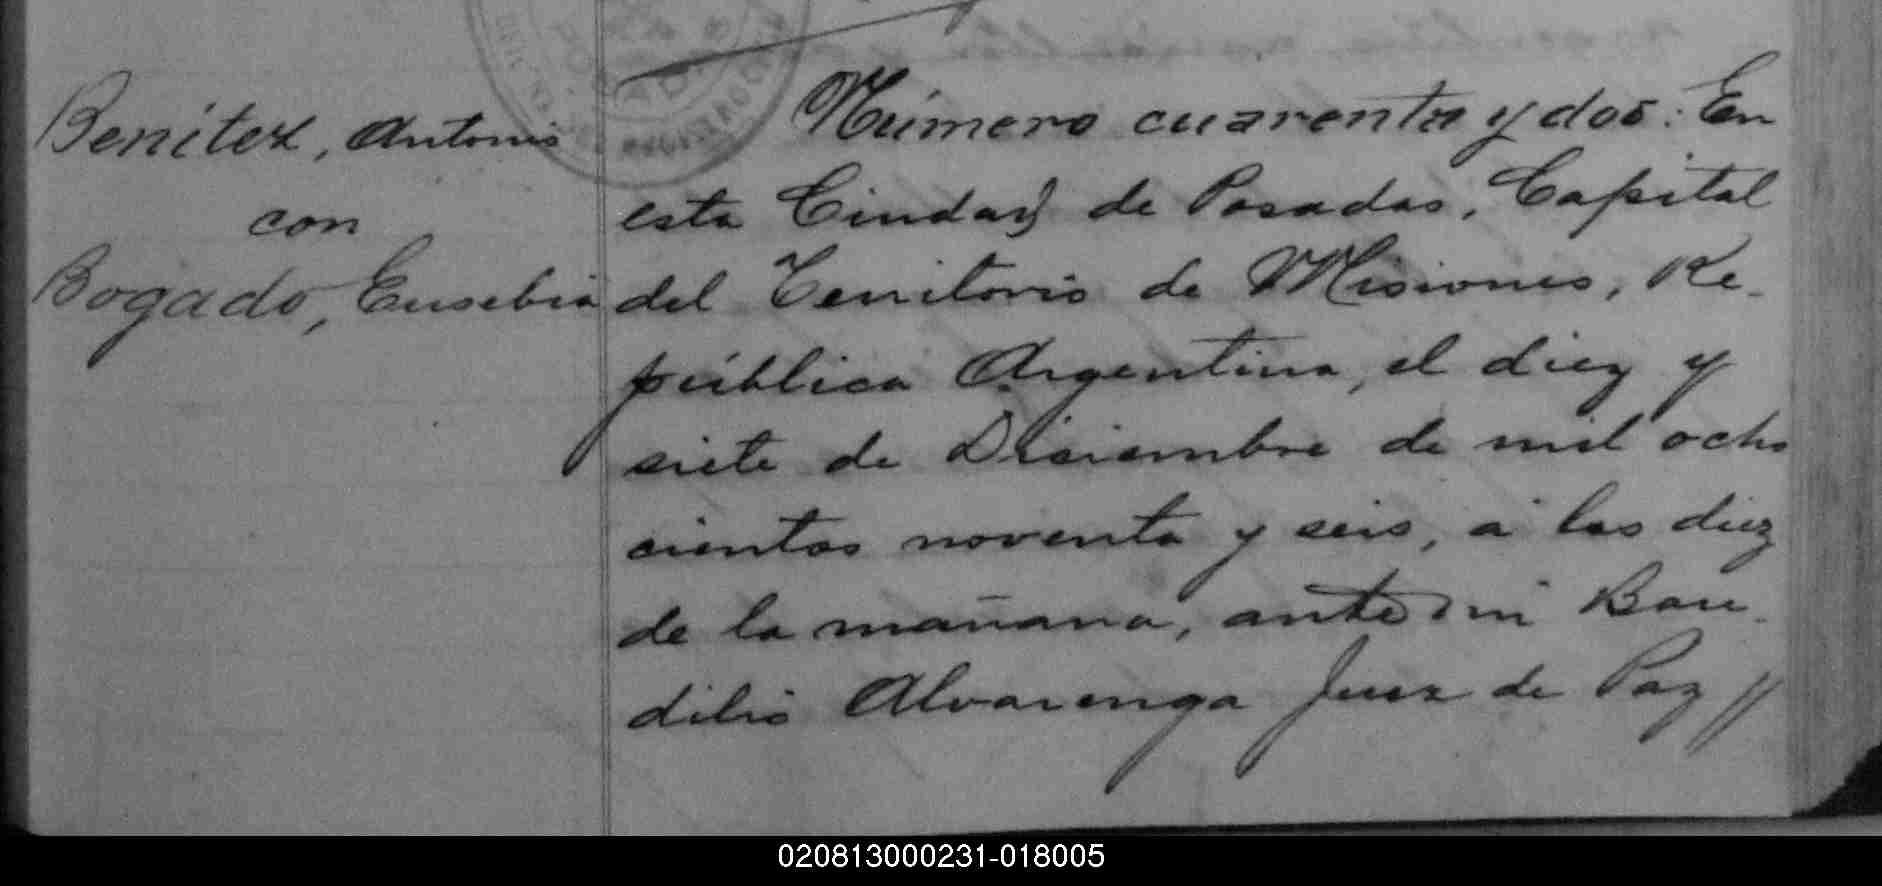 Benítez, Antonio
con
Bogado, Eusebia
Número cuarenta y dos: En
esta Ciudad de Posadas, Capital
del Territorio de Misiones, Re-
pública Argentina, el diez y
siete de Diciembre de mil ocho
cientos noventa y seis, a las diez
de la mañana, ante mi Bau-
dilio Alvarenga Juez de Paz //
020813000231-018005